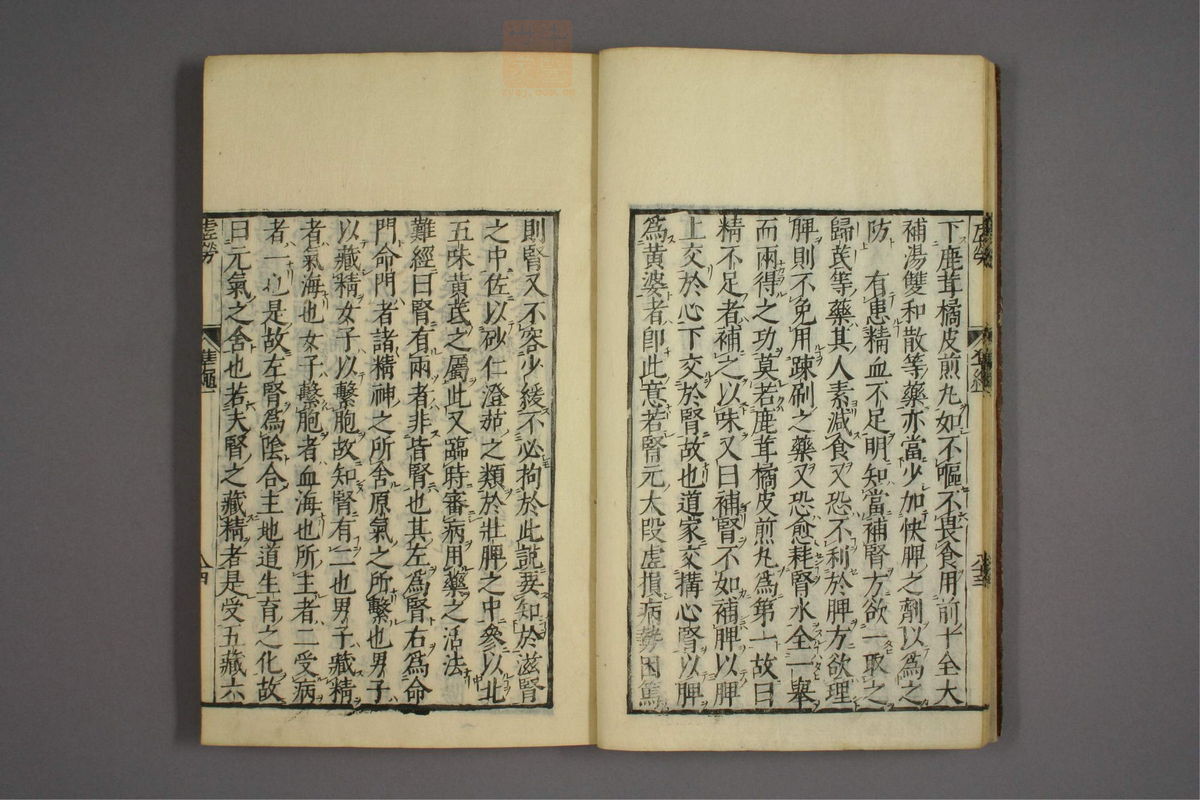 下鹿茸橘皮煎丸如不嘔不畏食用前十全大
補湯雙和散等藥亦當少加快脾之劑以爲之
防　有患精血不足明知當補腎方欲一取之
歸芪等藥其人素減食又恐不利於脾方欲理
脾則不免用踈刷之藥又恐愈耗腎水全一舉
而兩得之功莫若鹿茸橘皮煎丸爲第一故曰
精不足者補之以味又曰補腎不如補脾以脾
上交於心下交於腎故也道家交搆心腎以脾
爲黄婆者卽此意若腎元大段虛損病勢困篤
則腎又不容少緩不必拘於此說要知於滋腎
之中佐以砂仁澄茄之類於壯脾之中參以北
五味黄芪之屬此又臨時審病用藥之活法
難經曰腎有兩者非皆腎也其左爲腎右爲命
門命門者諸精神之所舍原氣之所繫也男子
以藏精女子以繫胞故知腎有二也男子藏精
者氣海也女子繫胞者血海也所主者二受病
者一也是故左腎爲陰合主地道生育之化故
曰元氣之舍也若夫腎之藏精者是受五藏六
虛勞
八十四